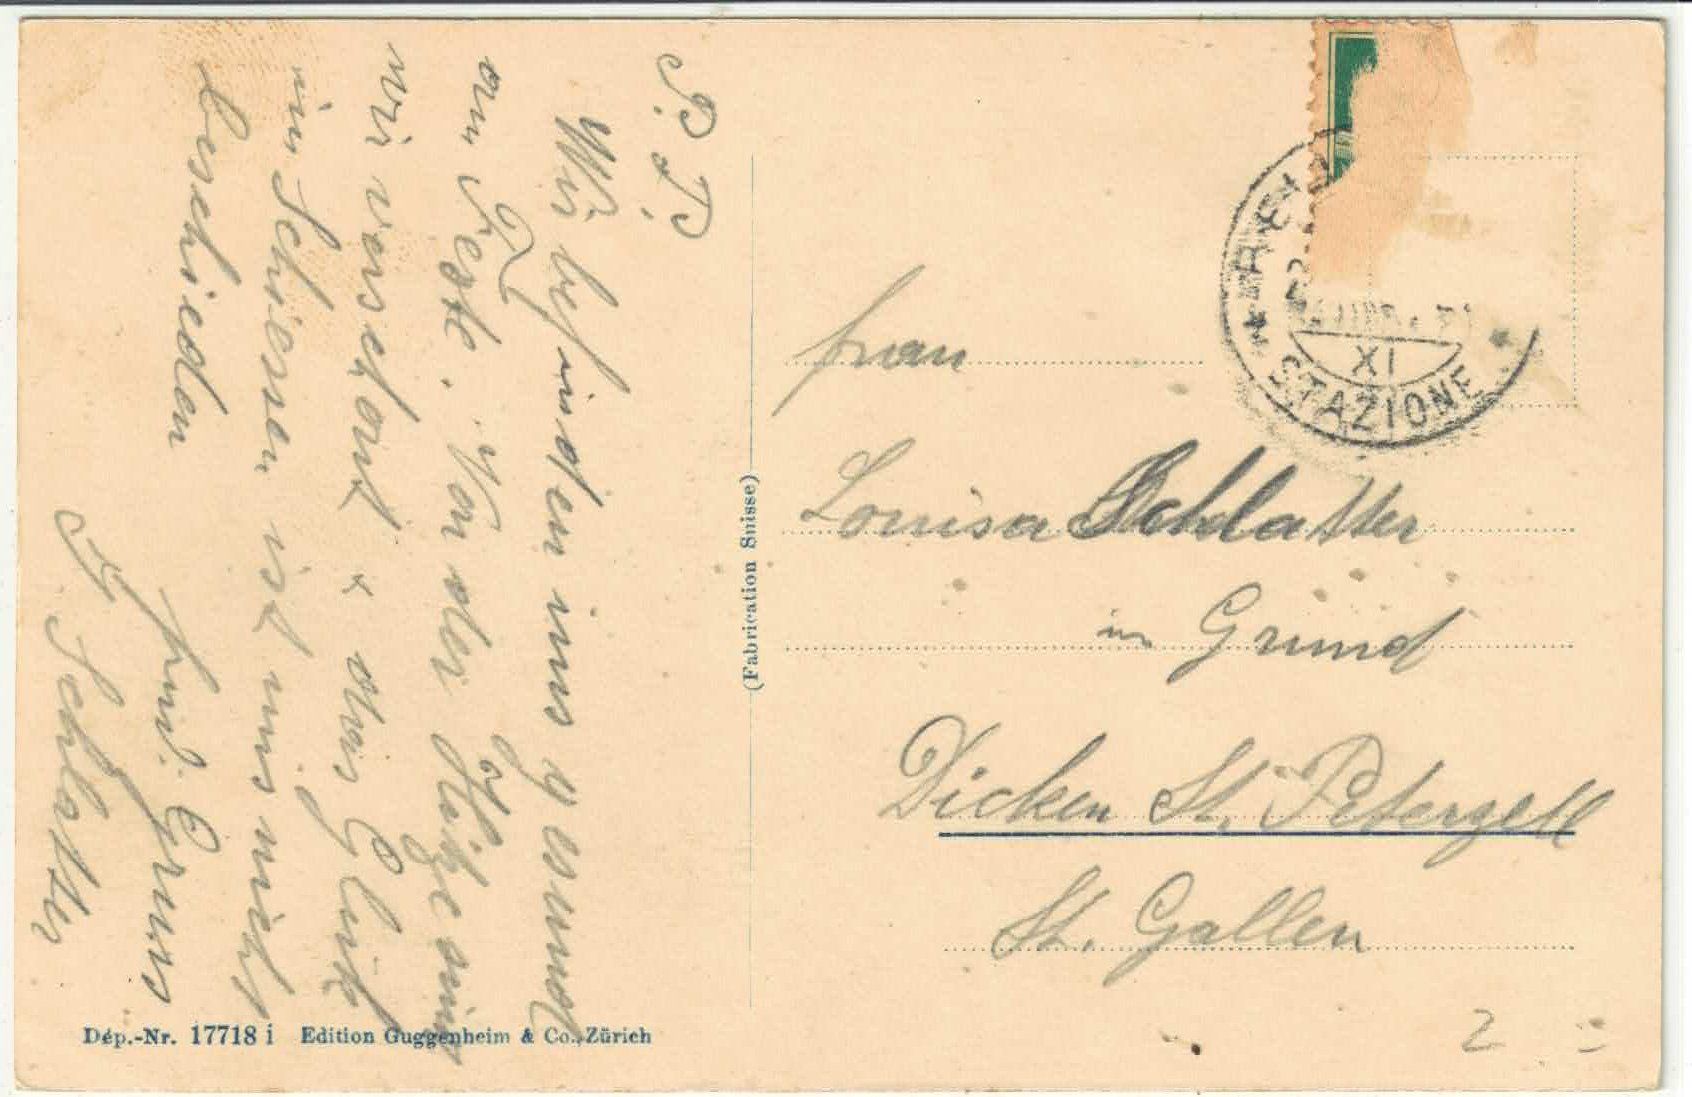 P. T.
Wir befinden uns gesund
am Feste. Von der Hitze sind
wir verschont & das Glück
im Schiessen ist uns nicht
beschieden
frdl. Gruss
Schlatter
Frau
Louisa Schlatter
in Grund
Dicken St. Peterzell
St. Gallen
STAZIONE
XI
(Fabrication Suisse)
Dép.-Nr. 17718 i Edition Guggenheim & Co., Zürich
2